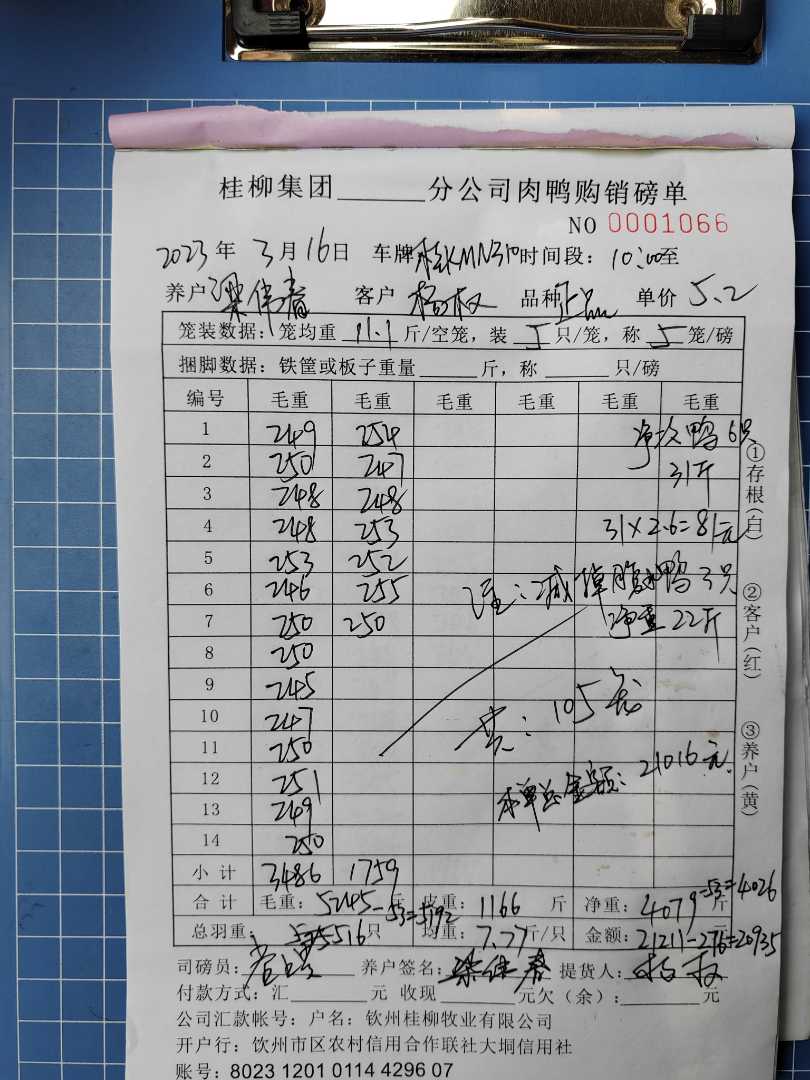 桂柳集团______分公司肉鸭购销磅单
NO 0001066
2023年3月16日 车牌桂KMN310时间段：10:00至
养户梁伟春 客户杨权 品种正品 单价5.2
笼装数据：笼均重11.1斤/空笼，装5只/笼，称5笼/磅
捆脚数据：铁筐或板子重量______斤，称______只/磅
编号 毛重 毛重 毛重 毛重 毛重 毛重
1 249 254 净次鸭6只
2 250 247 31斤
3 248 248
4 248 253 31×2.6=81元
5 253 252
6 246 255 注：减掉腹水鸭3只
7 250 250 净重22斤
8 250
9 245
10 247 共：105笼
11 250
12 251 本单总金额：21016元
13 249
14 250
小计 3486 1759
合计 毛重：5245-53=5192斤 皮重：1166斤 净重：4079-53=4026斤
总羽重：516只 均重：7.77斤/只 金额：21211-276=20935
司磅员： 养户签名：梁伟春 提货人：杨权
付款方式：汇______元 收现______元欠（余）：______元
公司汇款帐号：户名：钦州桂柳牧业有限公司
开户行：饮州市区农村信用合作联社大垌信用社
账号：8023 1201 0114 4296 07
①存根(白)
②客户(红)
③养户(黄)